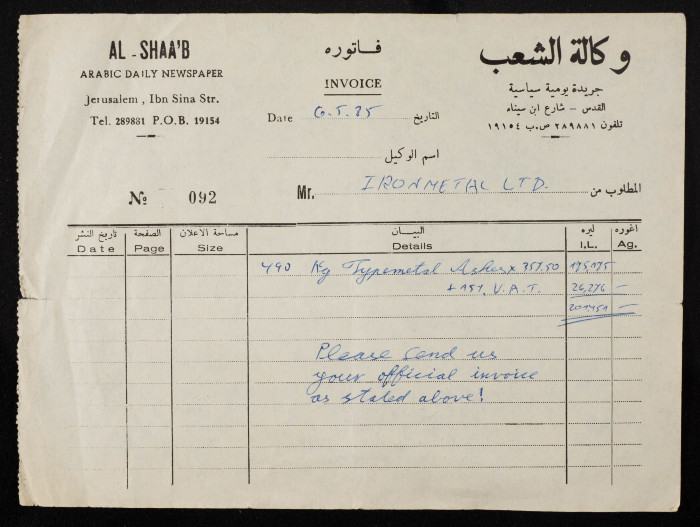 AL - SHAA'B
ARABIC DAILY NEWSPAPER
Jerusalem , Ibn Sina Str.
Tel. 289881 P.O.B. 19154
فـاتوره
INVOICE
وكالة الشعب
جريدة يومية سياسية
القدس – شارع ابن سيناء
تلفون ٢٨٩٨٨١ ص.ب ١٩١٥٤
Date 6.5.85 التاريخ
اسم الوكيل
№ 092
Mr. IRONMETAL LTD. المطلوب من
تاريخ النشر الصفحة مساحة الاعلان البـيـــان ليره اغوره
Date Page Size Details I.L. Ag.
490 Kg Typemetal Ashes x 357.50 175,175
+ 15% V.A.T. 26,276 —
201451 —
Please send us
your official invoice
as stated above!